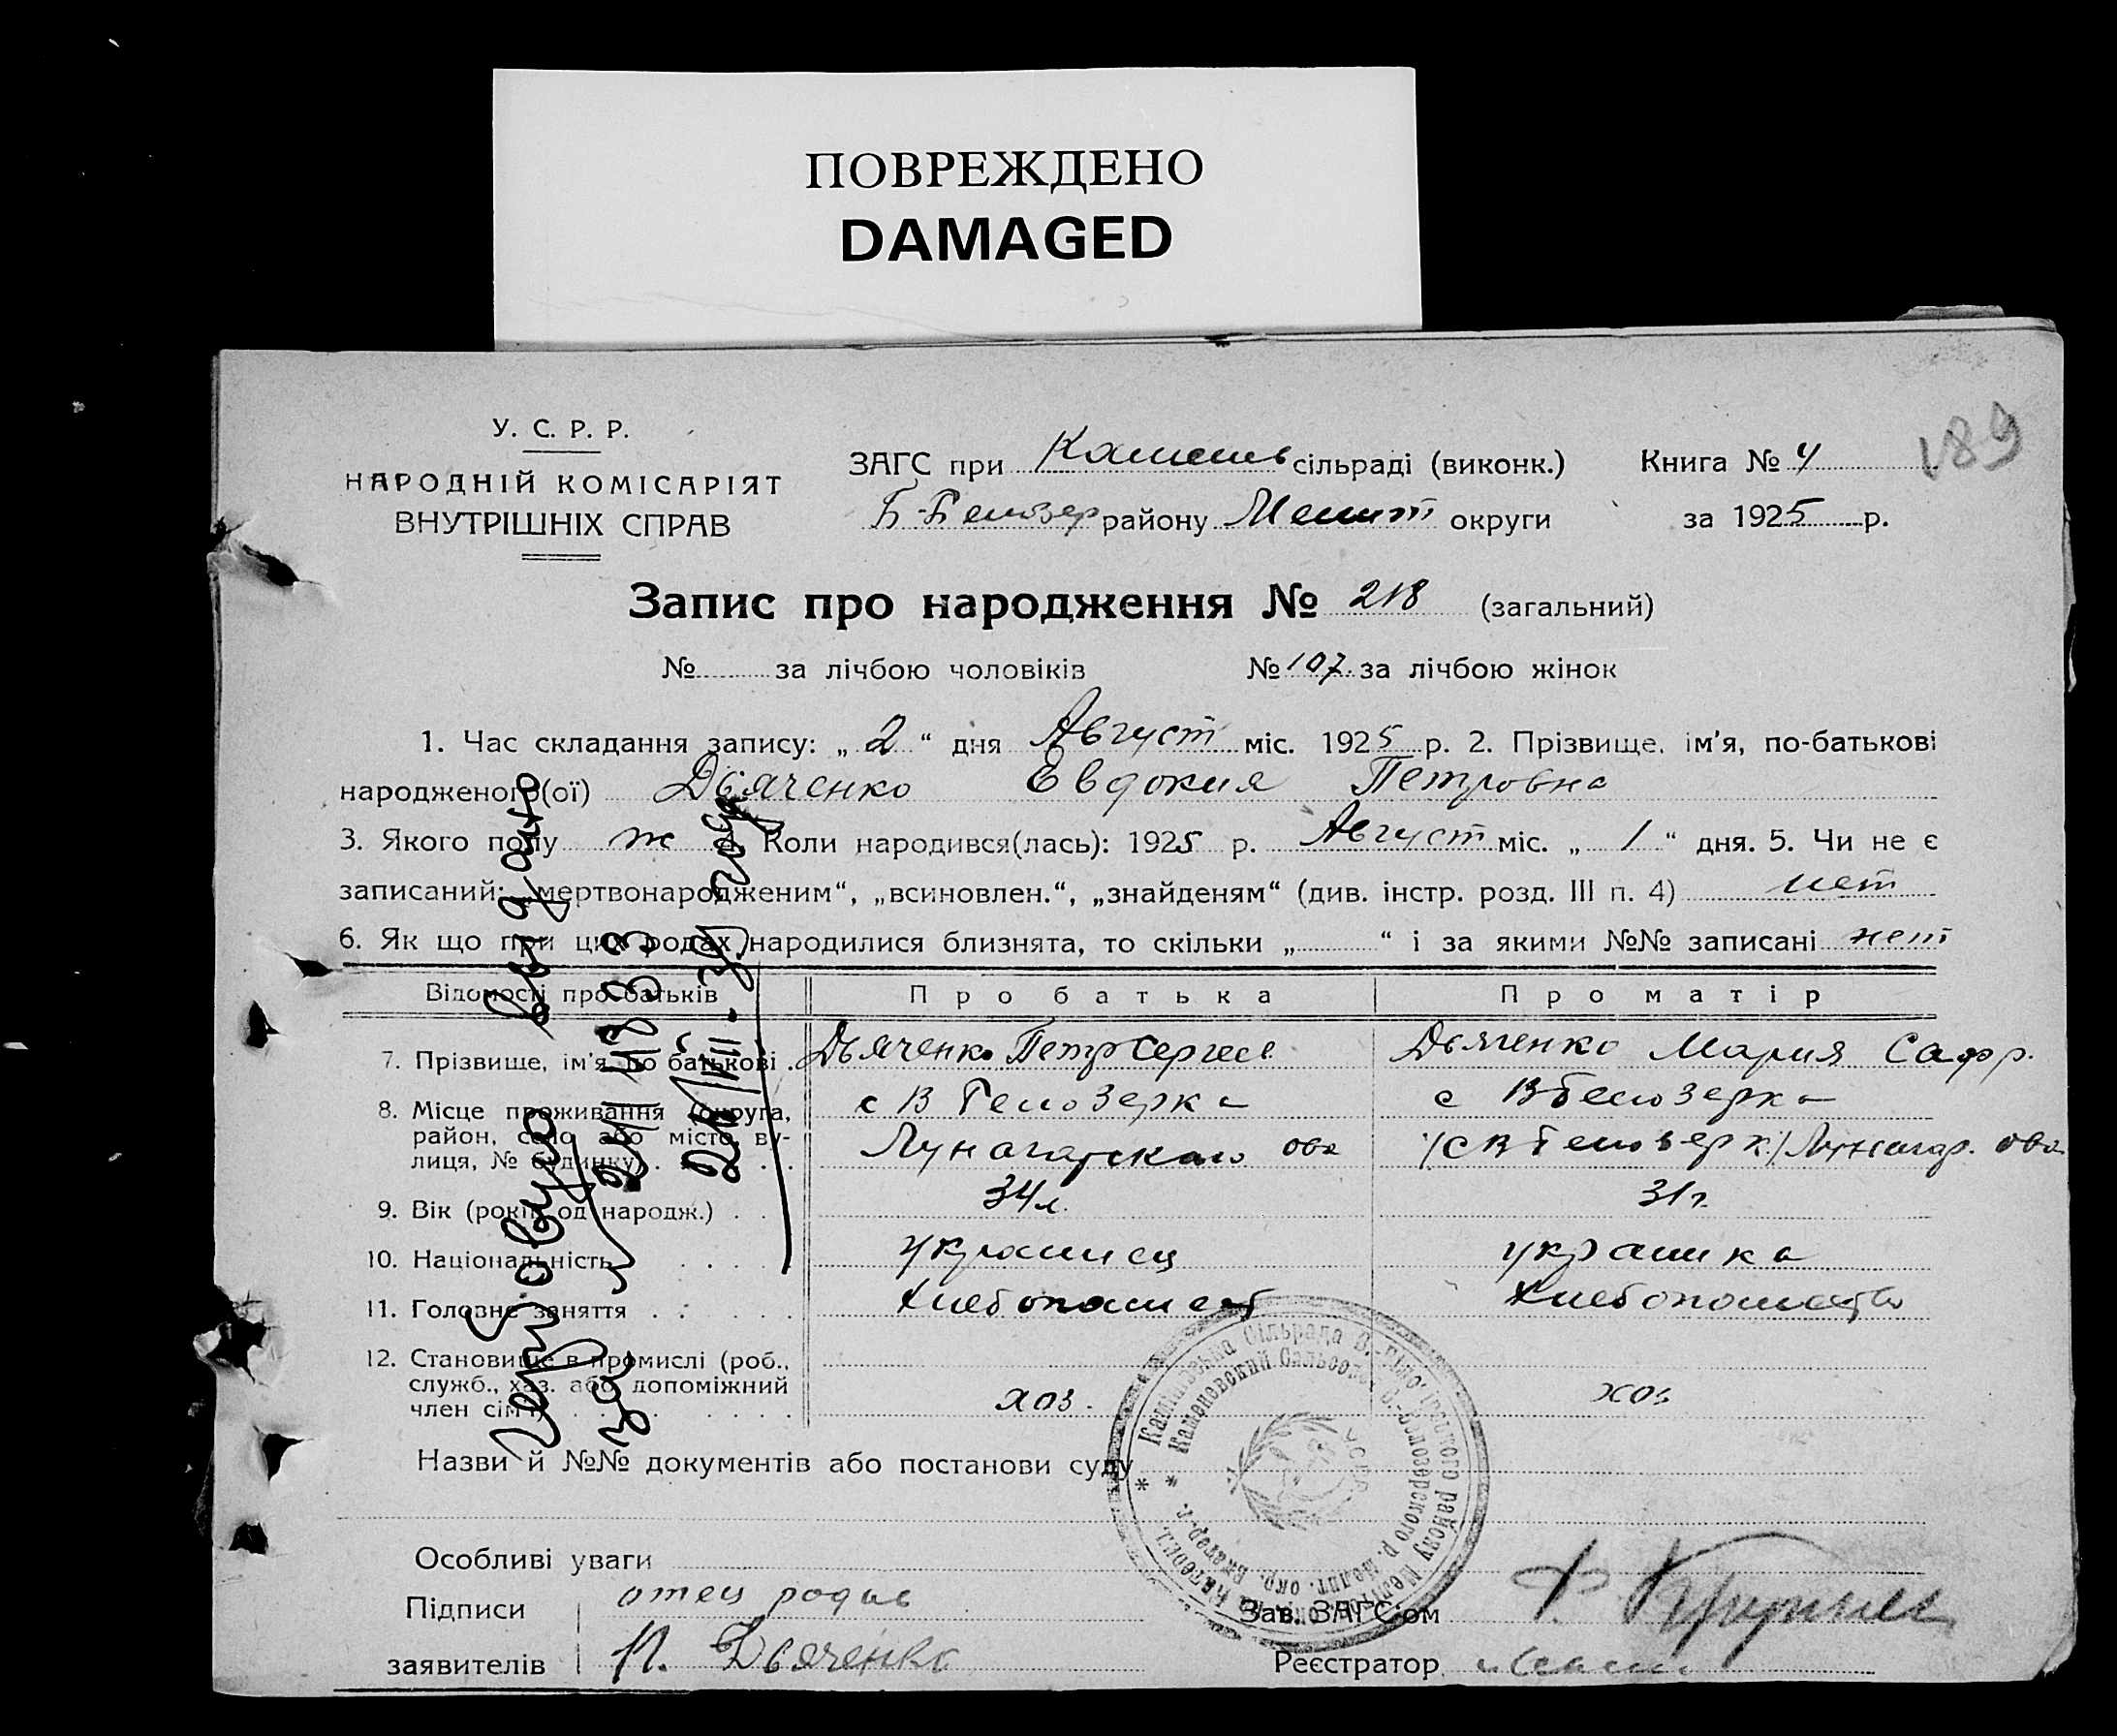 ПОВРЕЖДЕНО
DAMAGED
189
У. С. Р. Р.
НАРОДНІЙ КОМІСАРІЯТ
ВНУТРІШНІХ СПРАВ
ЗАГС при Каменев сільраді (виконк.)
Б-Белозер району Мелит округи
Книга № 4
за 1925 р.
Запис про народження № 218 (загальний)
№ за лічбою чоловіків № 107 за лічбою жінок
1. Час складання запису: „ 2 “ дня Август міс. 1925 р. 2. Прізвище, ім’я, по-батькові
народженого(ої) Дьяченко Евдокия Петровна
3. Якого полу ж 4. Коли народився(лась): 1925 р. Август міс. „ 1 “ дня. 5. Чи не є
записаний: „мертвонародженим“, „всиновлен.“, „знайденям“ (див. інстр. розд. III п. 4) нет
6. Як що при цих родах народилися близнята, то скільки „ “ і за якими №№ записані нет
Відомості про батьків Про батька Про матір
7. Прізвище, ім’я, по батькові . Дьяченко Петр Сергеев Дьяченко Мария Сафр.
8. Місце проживання (округа, с В Белозерка с В Белозерка
район, село або місто, ву-
лиця, № будинку) . . . Луначарского ова /с В Белозерк./ Луначар. ова
9. Вік (років од народж.) . . 34 л. 31 г.
10. Національність . . . . украинец украинка
11. Головне заняття . . . . . хлебопашест хлебопашество
12. Становище в промислі (роб.,
служб., хаз. або допоміжний
член сім’ї) . . . . . . хоз. хоз
Назви й №№ документів або постанови суду
Особливі уваги
Підписи отец родив
заявителів П. Дьяченко
Зав. ЗАГС’ом
Реєстратор
выдано
за № 33
Каменовский Сальсовет
УСРР